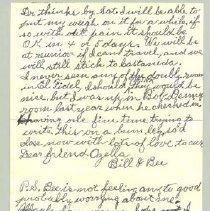 Dr. thinks by Sat I will be able to
put my weigh on it for a while, if
so with out pain it should be
OK in 4 or 5 days. We will be
at reunion if I can travel, and we
will still stick to lastanida.
I never seen any of the doubly rooms
in El Fidel, I should they would be
nice, but I was up in Bob Benny
room last year when he checked in.
one fine time trying to
write this on a bum leg so I'd
close now with lots of love to our
Dear friend Ozella
Bill & Bee
P.S. Bee is not feeling any to good
probably worring about me.